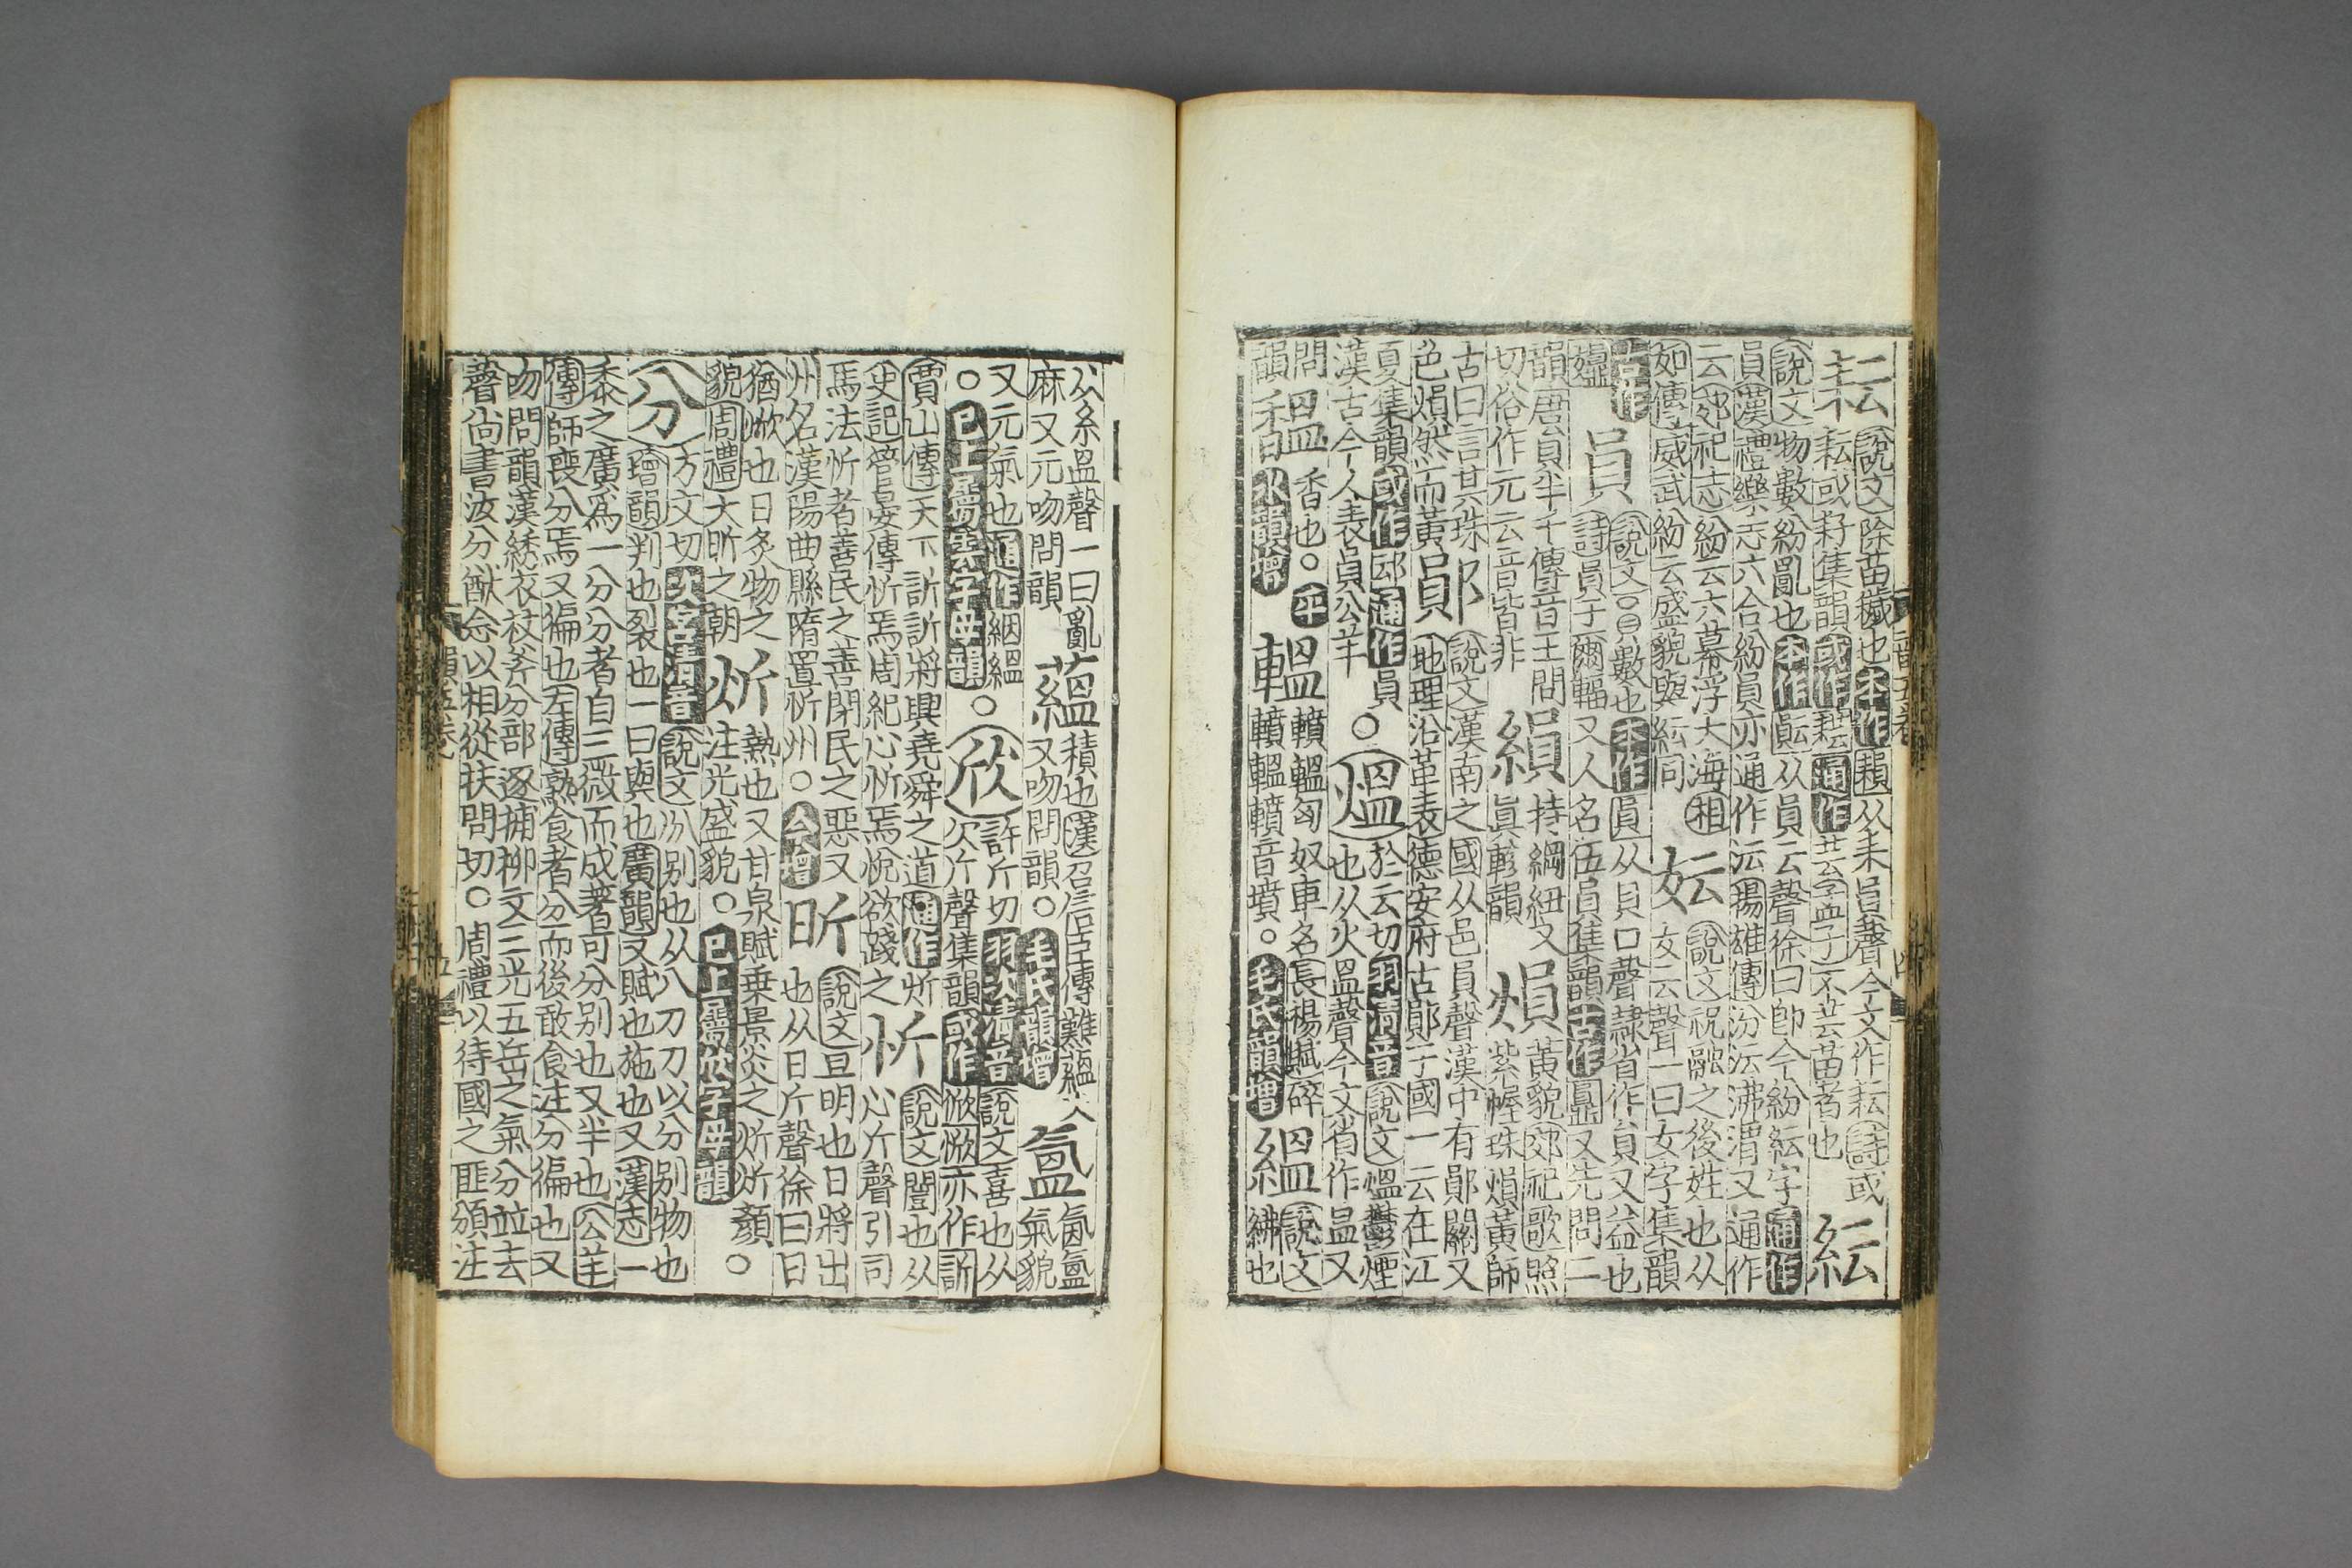 耘說文除苗穢也本作䅵从耒員聲今文作耘詩或
耘或耔集韻或作通作芸孟子不芸苗者也紜
說文物數紛亂也本作䡣从員云聲徐曰即今紛紜字通作
員漢禮樂志六合紛員亦通作沄揚雄傳汾沄沸渭又通作
云郊祀志紛云六幕浮大海相
如傳威武紛云盛貌與紜同妘說文祝融之後姓也从
女云聲一曰女字集韻
古作員說文數也本作員从貝口聲隸省作貟又益也
詩員于爾輻又人名伍員集韻古作又先問二
韻唐員半千傳音王問
切俗作元云音皆非縜持綱紐又
真軫韻熉黃貌郊祀歌照
紫幄珠熉黃師
古曰言其珠
色熉然而黃鄖說文漢南之國从邑員聲漢中有鄖關又
地理沿革表德安府古鄖子國一云在江
夏集韻或作䢵通作員
漢古今人表員公羊○熅於云切羽清音說文熅鬱煙
也从火𥁕聲今文省作昷又
問
韻馧香也○平
水韻增轀轒轀匈奴車名長楊賦碎
轒轀轒音墳○毛氏韻增縕說文
紼也
从糸𥁕聲一曰亂
麻又元吻問韻蘊積也漢召信臣傳難蘊火
又吻問韻○毛氏韻增氳氤氳
氣貌
又元氣也通作絪縕○
○已上屬雲字母韻欣許斤切羽次清音說文喜也从
欠斤聲集韻或作俽惞亦作訢
賈山傳天下訢訢將興堯舜之道通作炘
史記管晏傳忻焉周紀心忻焉悅欲踐之忻說文闓也从
心斤聲引司
馬法忻者善民之善閉民之惡又
州名漢陽曲縣隋置忻州○今增昕說文旦明也日將出
也从日斤聲徐曰日
猶焮也日炙物之
貌周禮大昕之朝炘熱也又甘泉賦乗景炎之炘炘顏
注光盛貌○已上屬欣字母韻○
分方文切次宮清音說文分别也从八刀刀以分别物也
增韻判也裂也一曰與也廣韻又賦也施也又漢志一
黍之廣爲一分分者自三微而成著可分别也又半也公羊
傳師喪分焉又徧也左傳熟食者分而後敢食注分徧也又
吻問韻漢綉衣杖斧分部逐捕柳文三光五岳之氣分並去
聲尚書汝分猷念以相從扶問切○周禮以待國之匪頒注